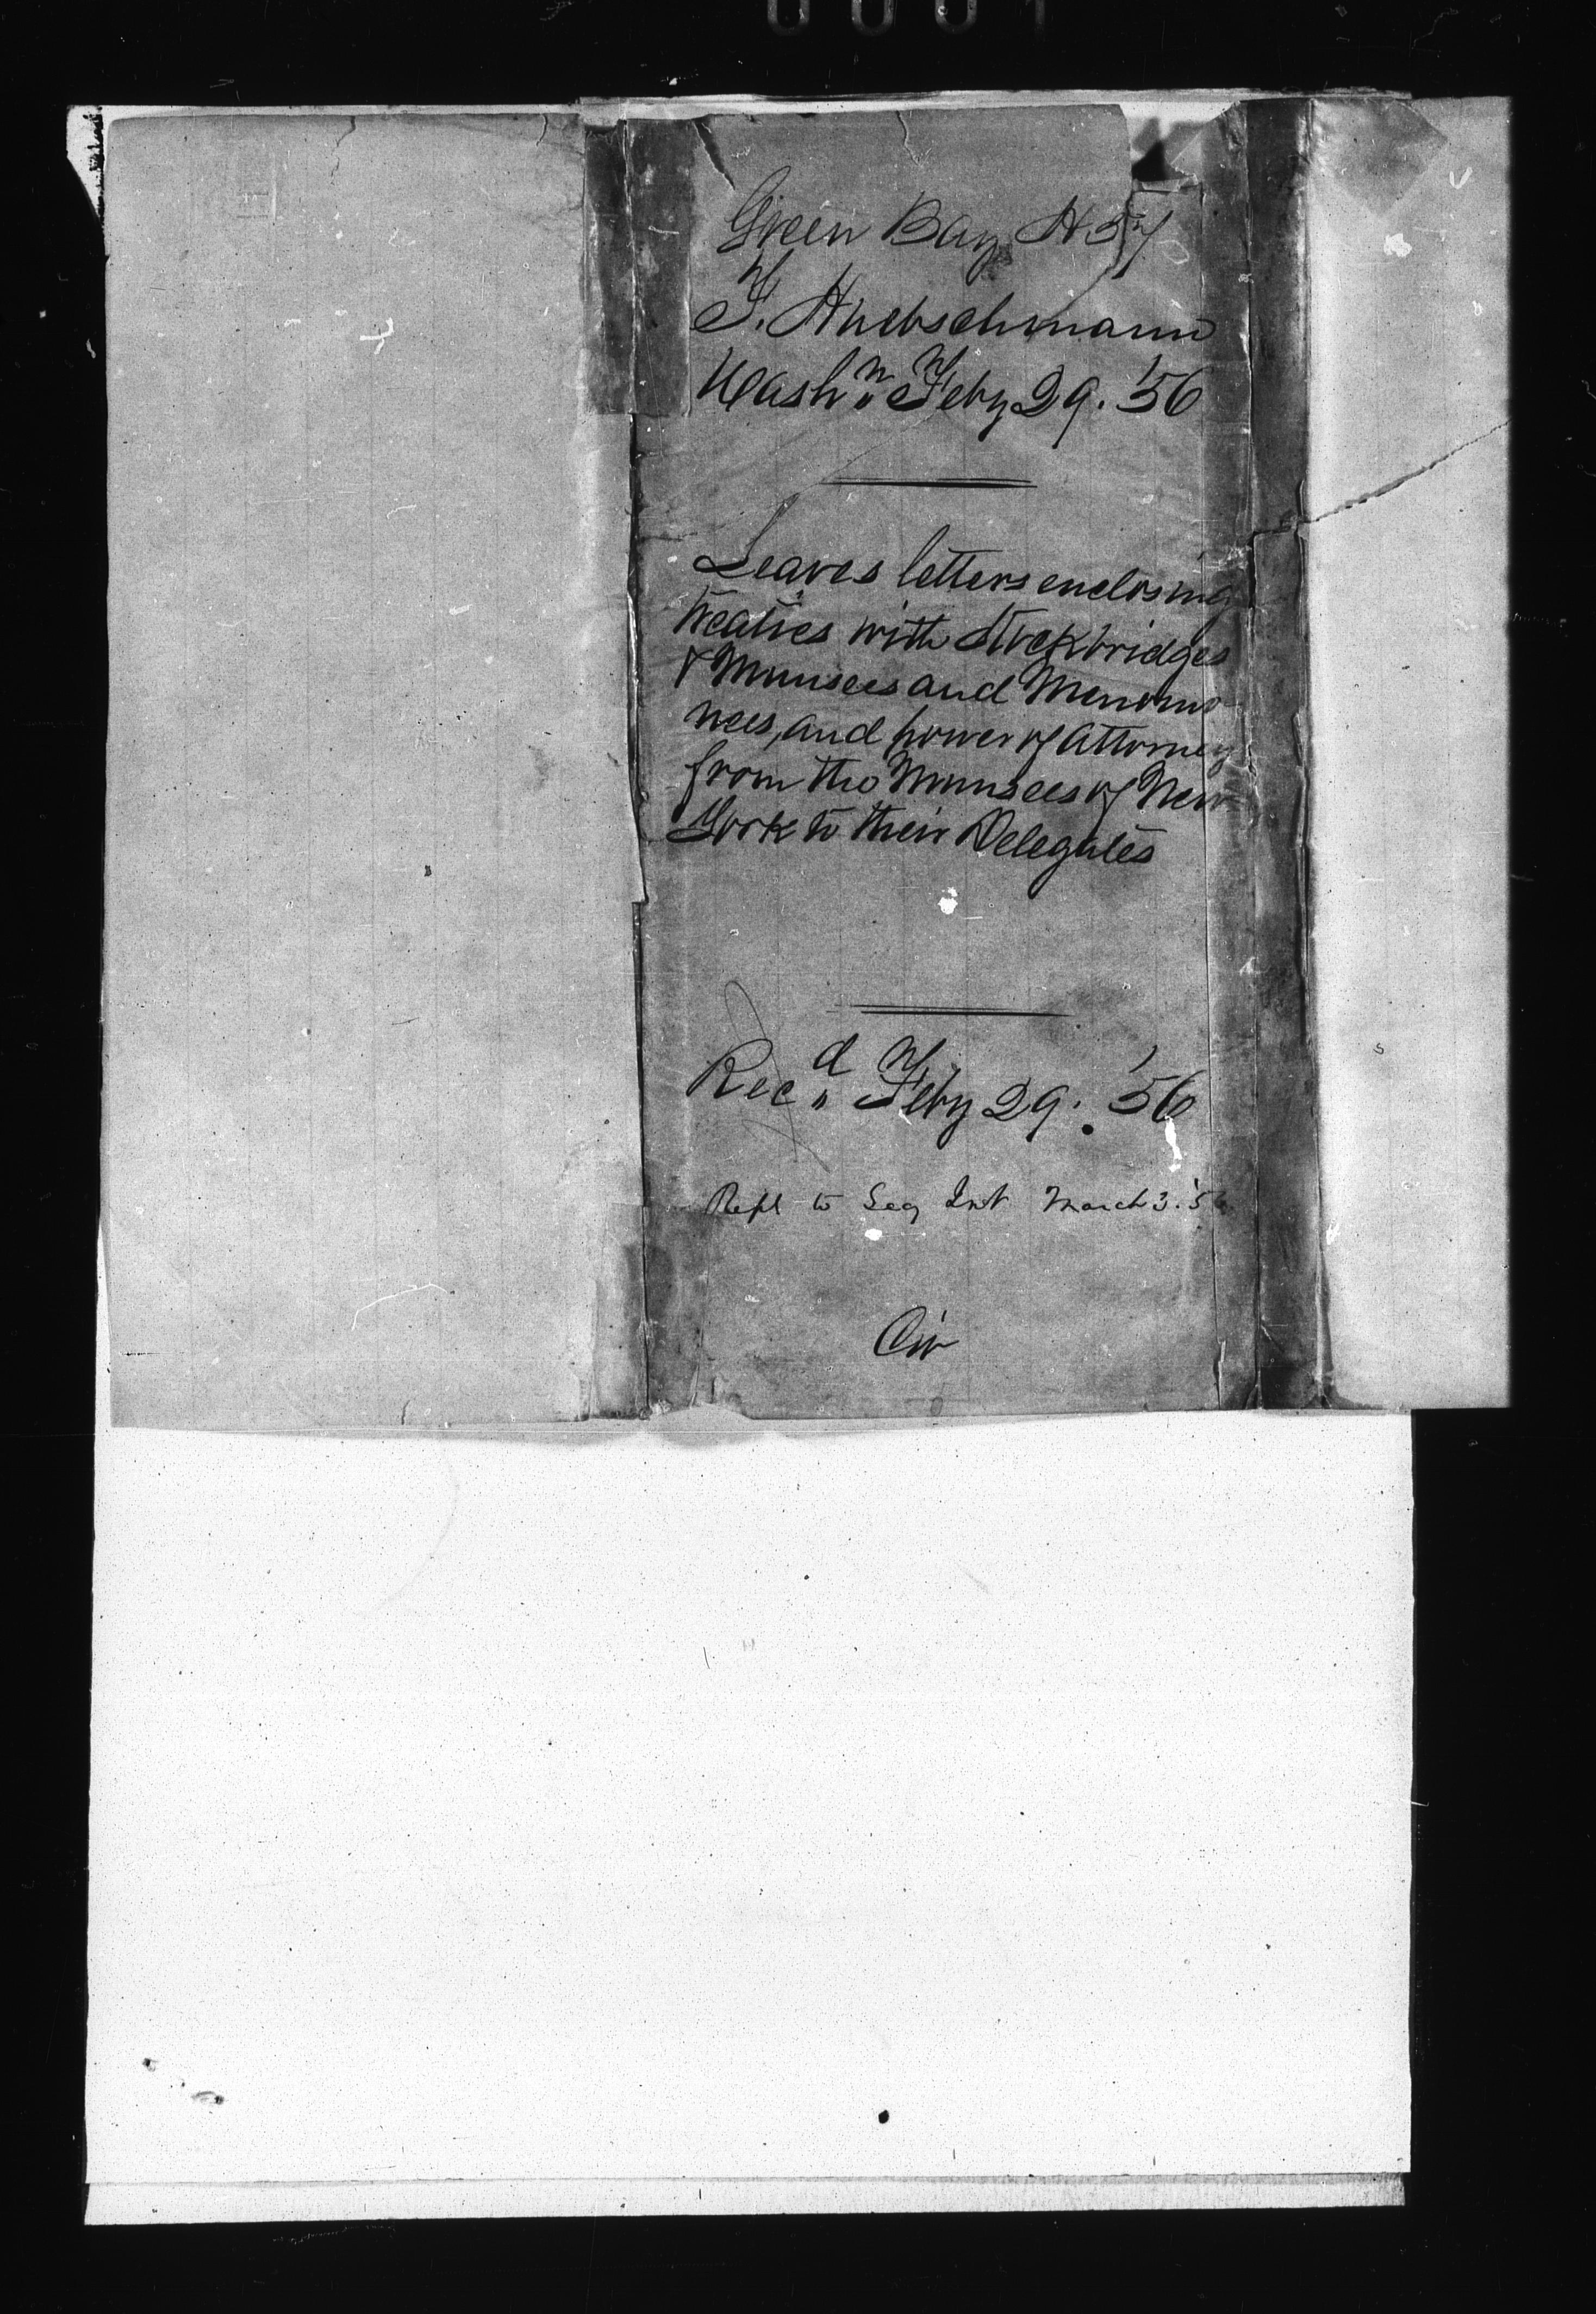 Green Bay H 57
F. Huebschmann
Washn Feby 29. '56
Leaves letters enclosing
treaties with Stockbridges
& Munsees and Menomo-
nees, and power of Attorney
from the Munsees of New
York to their Delegates
Recd Feby 29. '56
Rept to Secy Int March 3. '56